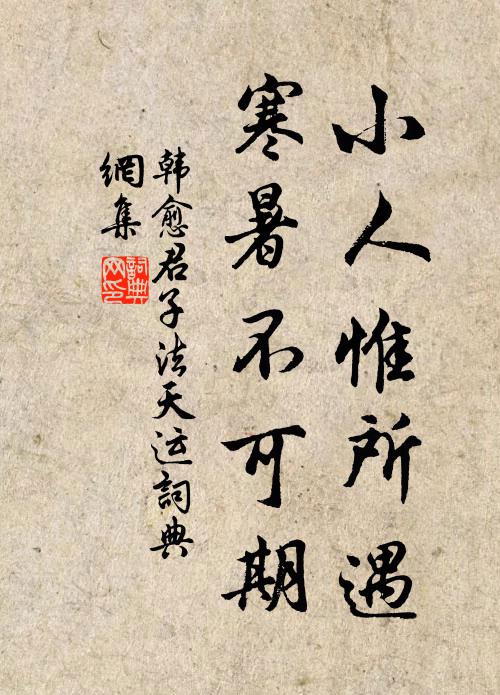 小人惟所遇
寒暑不可期
韩愈君子法天运詞典
網集
詞典
网印